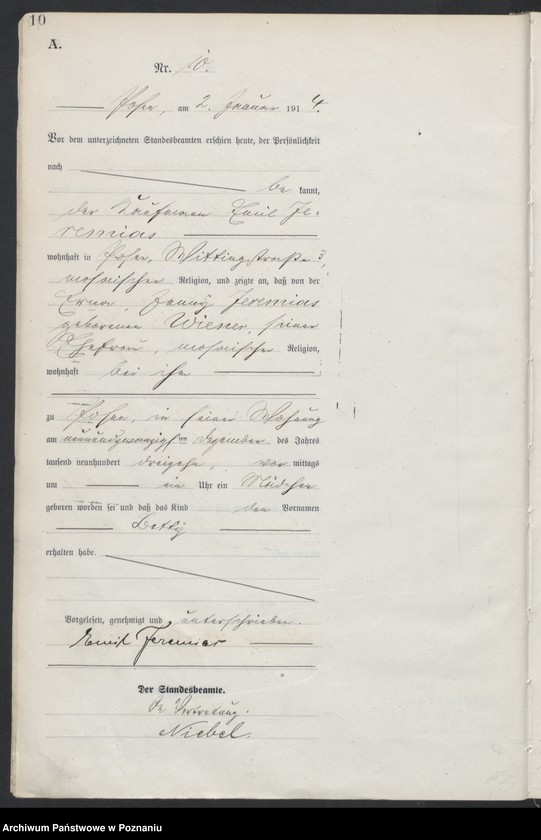 10
A.
Nr. 10.
Posen, am 2. Januar 1914.
Vor dem unterzeichneten Standesbeamten erschien heute, der Persönlichkeit
nach
be kannt,
der Kaufmann Emil Je-
remias
wohnhaft in Posen, Wittingstraße 3,
mosaischer Religion, und zeigte an, daß von der
Erna, Fanny Jeremias
geborenen Wiener, seiner
Ehefrau, mosaischer Religion,
wohnhaft bei ihm
zu Posen, in seiner Wohnung
am neunundzwanzigsten Dezember des Jahres
tausend neunhundert dreizehn, vor mittags
um ein Uhr ein Mädchen
geboren worden sei und daß das Kind den Vornamen
Betty
erhalten habe.
Vorgelesen, genehmigt und unterschrieben.
Emil Jeremias
Der Standesbeamte.
In Vertretung.
Niebel.
Archiwum Państwowe w Poznaniu